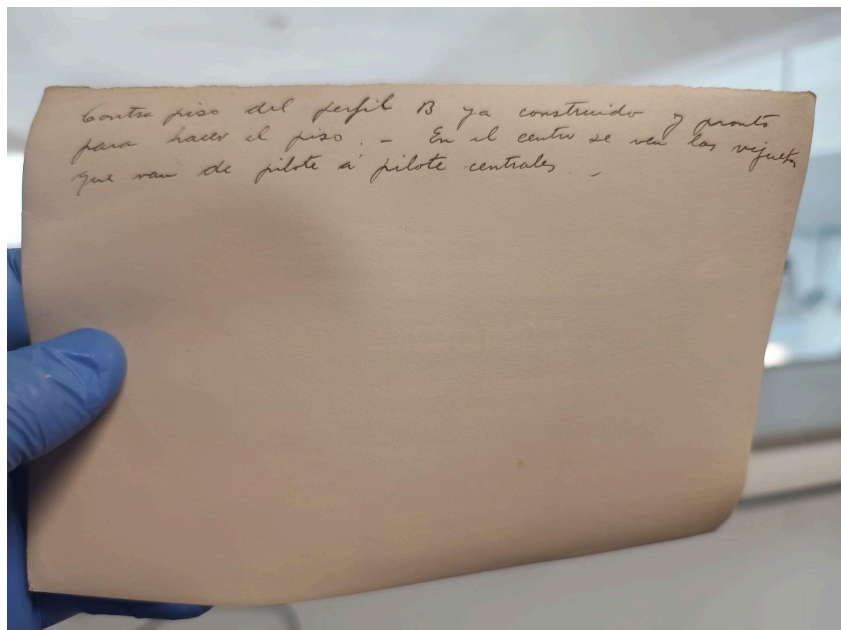 Contra piso del perfil B ya construido y pronto
para hacer el piso. - En el centro se ven las viguetas
que van de pilote á pilote centrales. -